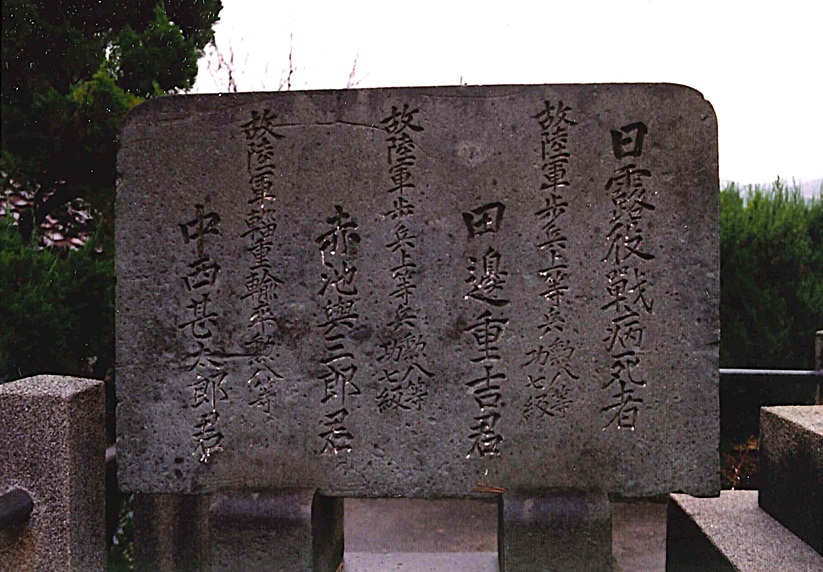 日露役戰病死者
故陸軍歩兵上等兵勲八等功七級
田邊重吉君
故陸軍歩兵上等兵勲八等功七級
赤池與三郎君
故陸軍輜重輸卒勲八等
中西甚太郎君